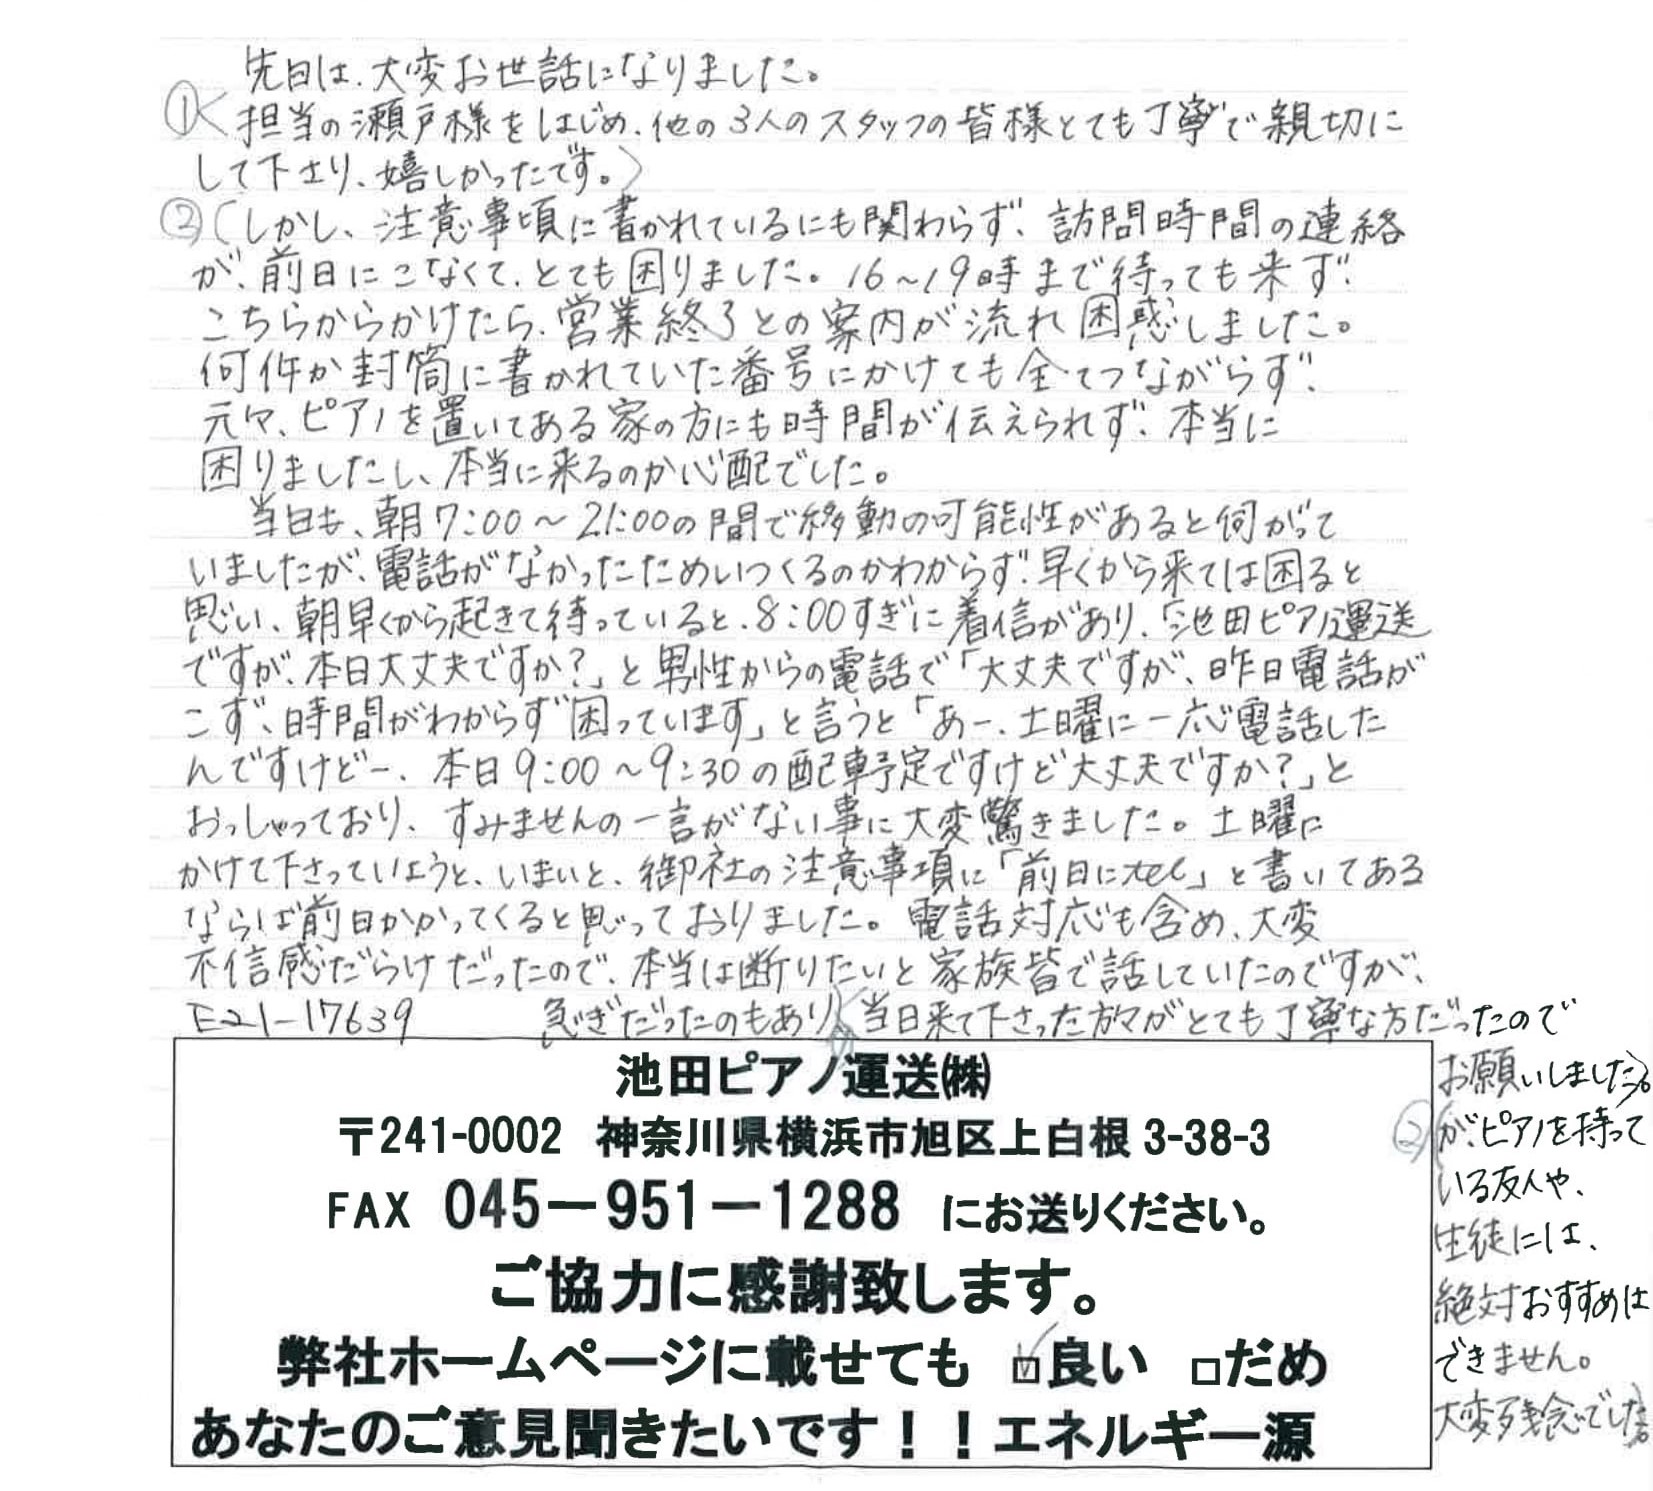 先日は、大変お世話になりました。
①〈担当の瀬戸様をはじめ、他の3人のスタッフの皆様とても丁寧で親切に
して下さり、嬉しかったです。〉
②(しかし、注意事項に書かれているにも関わらず、訪問時間の連絡
が、前日にこなくて、とても困りました。16~19時まで待っても来ず、
こちらからかけたら、営業終了との案内が流れ困惑しました。
何件か封筒に書かれていた番号にかけても全てつながらず、
元々、ピアノを置いてある家の方にも時間が伝えられず、本当に
困りましたし、本当に来るのか心配でした。
当日も、朝7:00~21:00の間で移動の可能性があると伺がって
いましたが、電話がなかったためいつくるのかわからず、早くから来ては困ると
思い、朝早くから起きて待っていると、8:00すぎに着信があり、「池田ピアノ運送
ですが、本日大丈夫ですか?」と男性からの電話で「大丈夫ですが、昨日電話が
こず、時間がわからず困っています」と言うと「あー、土曜に一応電話した
んですけどー、本日9:00~9:30の配車予定ですけど大丈夫ですか?」と
おっしゃっており、すみませんの一言がない事に大変驚きました。土曜に
かけて下さっていようと、いまいと、御社の注意事項に「前日にtel」と書いてある
ならば前日かかってくると思っておりました。電話対応も含め、大変
不信感だらけだったので、本当は断りたいと家族皆で話していたのですが、
E21-17639 急ぎだったのもあり)〈当日来て下さった方々がとても丁寧な方だったので
お願いしました〉。
②(が、ピアノを持って
いる友人や、
生徒には、
絶対おすすめは
できません。
大変残念でした)。
池田ピアノ運送㈱
〒241-0002 神奈川県横浜市旭区上白根3-38-3
FAX 045-951-1288 にお送りください。
ご協力に感謝致します。
弊社ホームページに載せても ☑良い □だめ
あなたのご意見聞きたいです!!エネルギー源